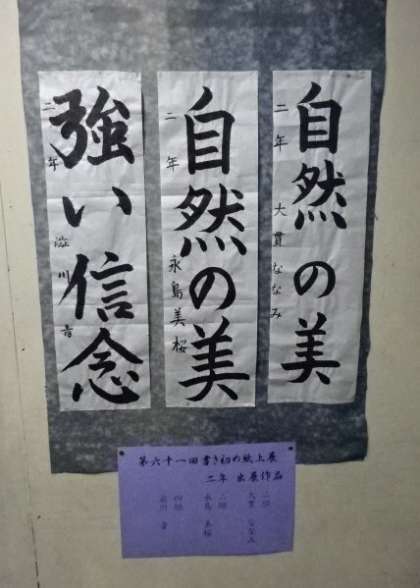 自然の美
二年 大貫ななみ
自然の美
二年 永島美桜
強い信念
二年 澁川音
第六十一回書き初め紙上展
二年 出展作品
大貫 ななみ
永島 美桜